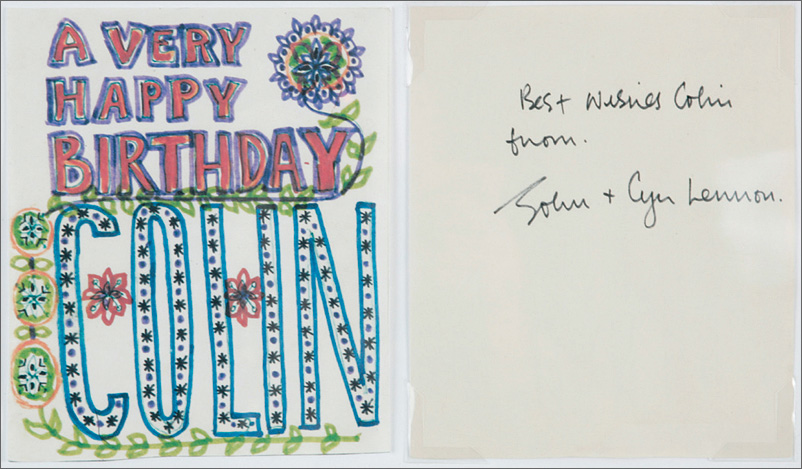 A VERY
HAPPY
BIRTHDAY
COLIN
Best wishes Colin
from.
John + Cyn Lennon.